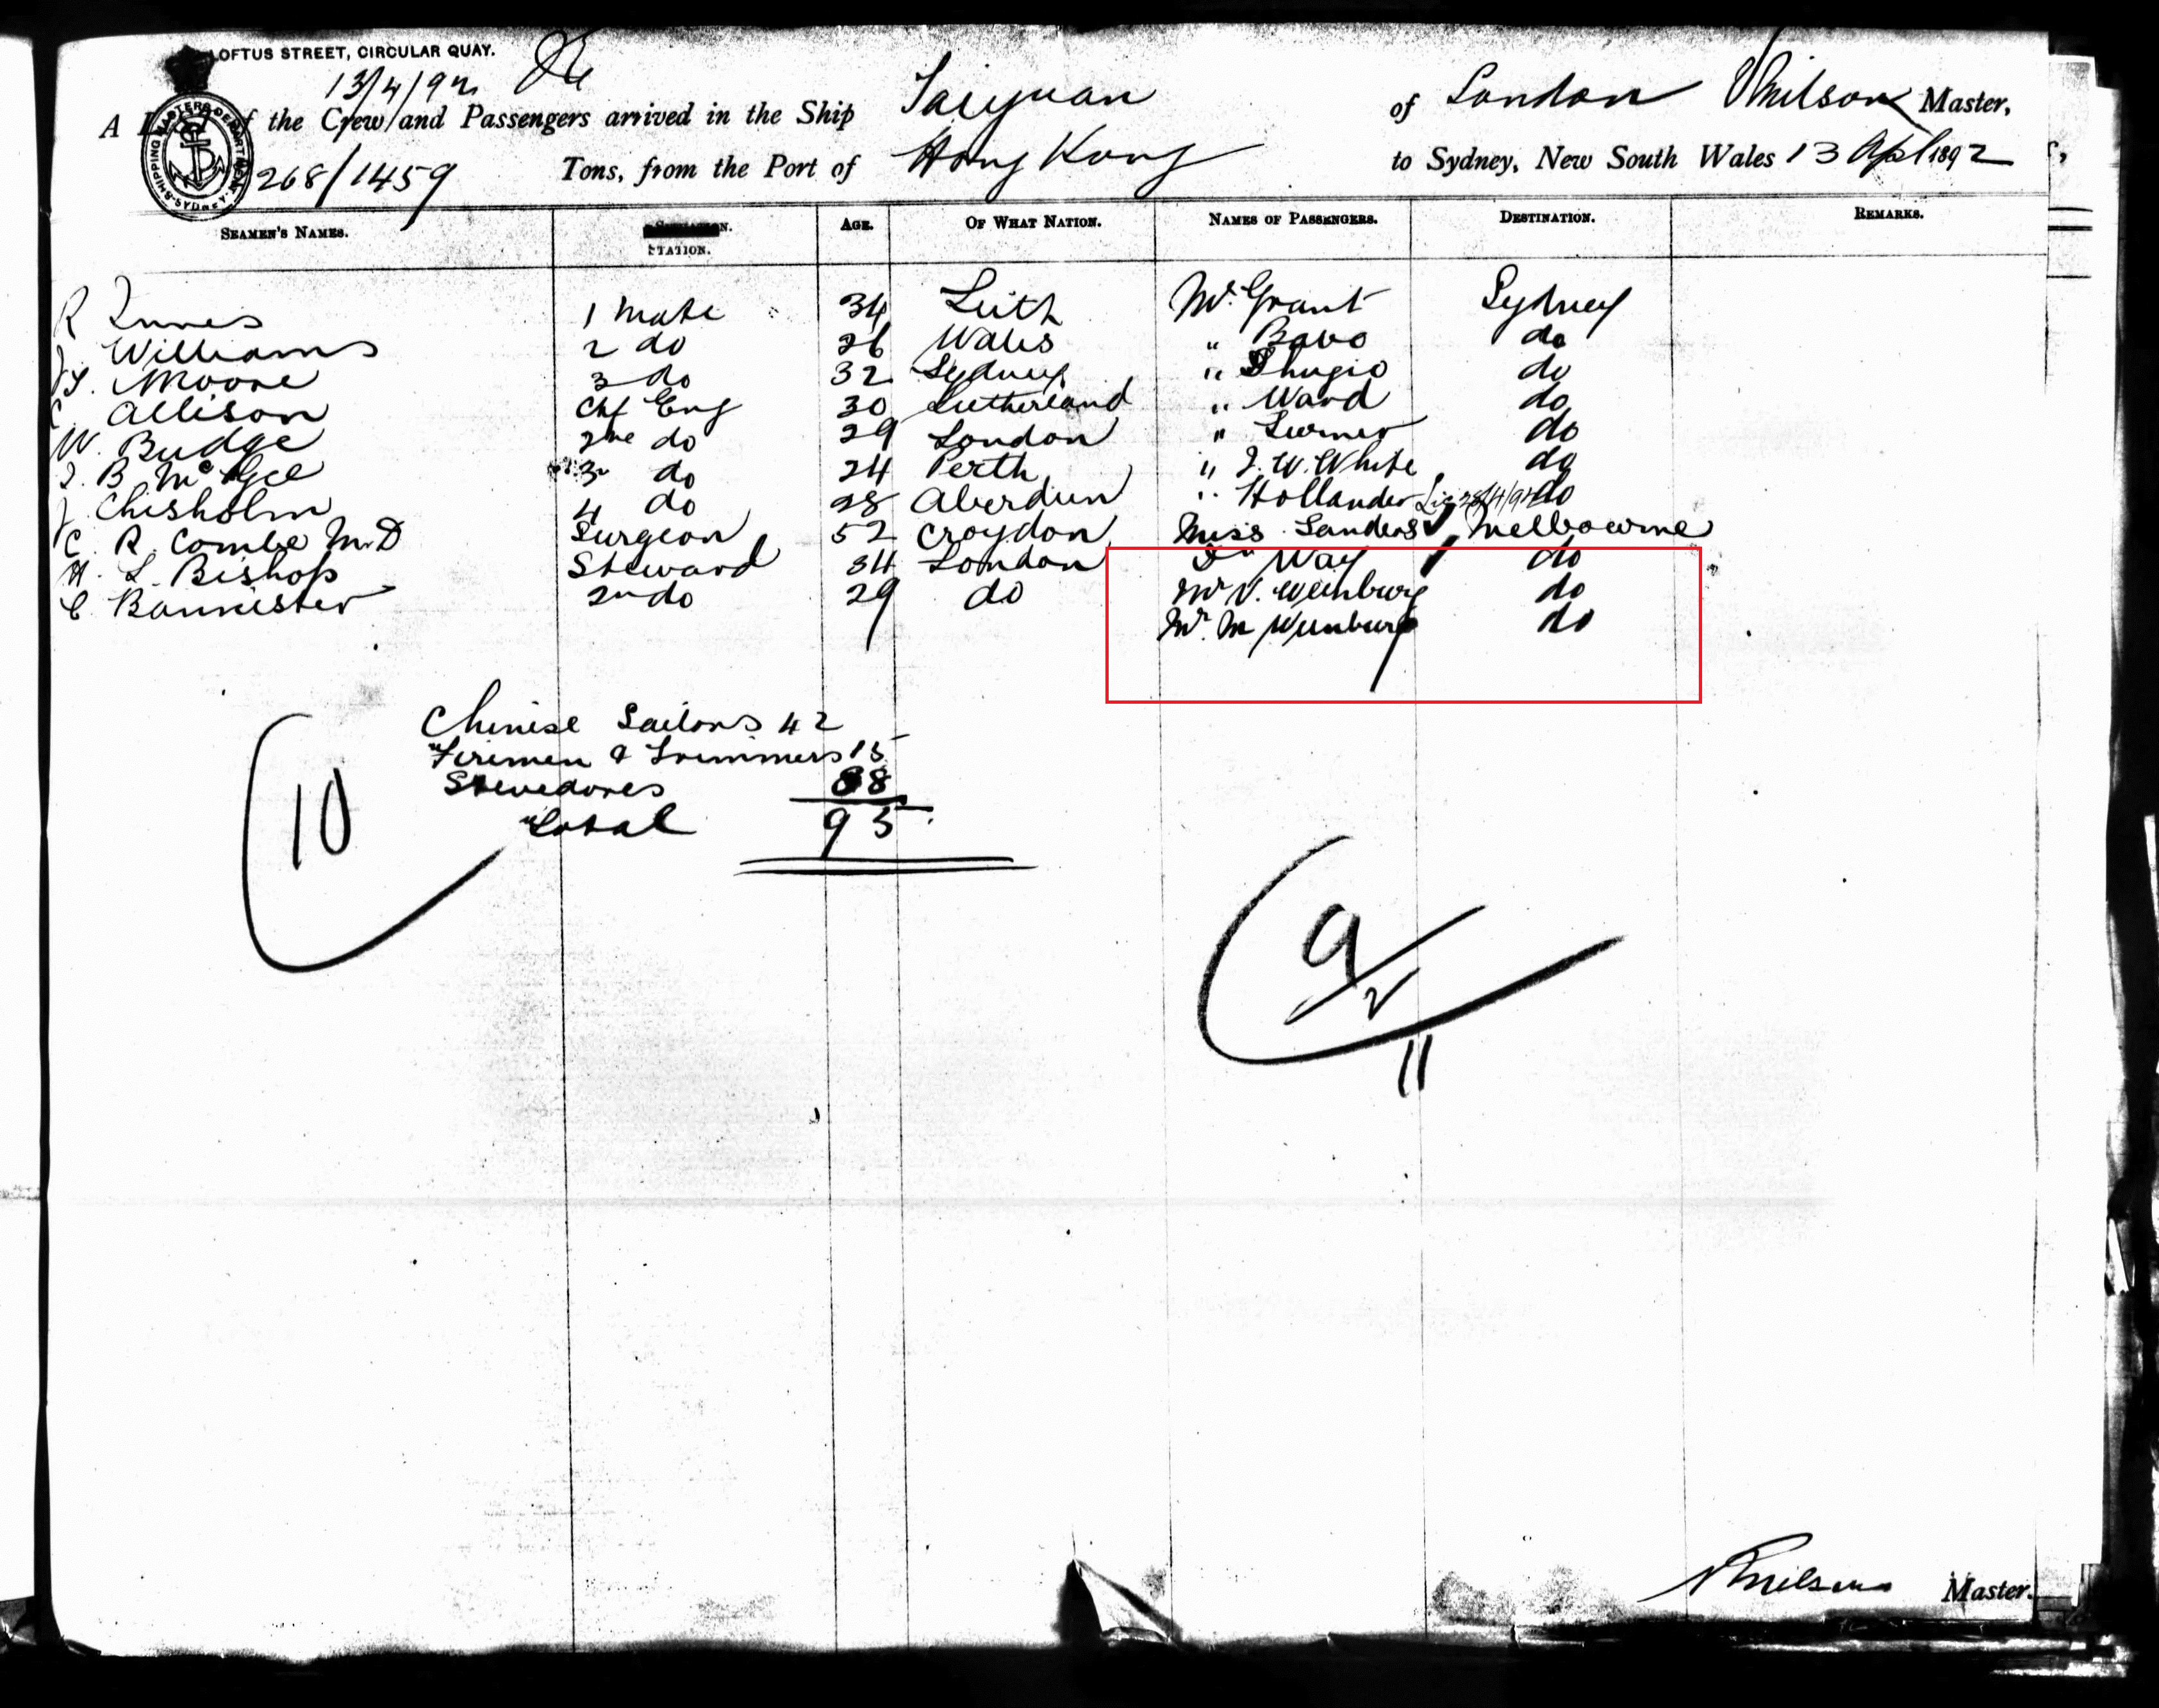 LOFTUS STREET, CIRCULAR QUAY.
13/4/92
A of the Crew and Passengers arrived in the Ship Taiyuan of London Nelson Master,
SHIPPING MASTERS DEPARTMENT SYDNEY
268/1459 Tons, from the Port of Hong Kong to Sydney, New South Wales 13 Apl 1892
SEAMEN'S NAMES. STATION. AGE. OF WHAT NATION. NAMES OF PASSENGERS. DESTINATION. REMARKS.
R Innes 1 Mate 34 Leith Mr. Grant Sydney
Williams 2 do 26 Wales " do
Moore 3 do 32 Sydney " do
C. Allison Chf Eng 30 Sutherland " Ward do
W. Budge 2nd do 29 London " Turner do
J. B McGee 3 do 24 Perth " J. W. White do
J Chisholm 4 do 28 Aberdeen " Hollander do
C. R. Combe M.D Surgeon 52 Croydon Miss Sanders Melbourne
H. L. Bishop Steward 34 London Way do
C Bannister 2nd do 29 do Mr V. Weinburg do
Mr. M Weinburg do
Chinese Sailors 42
Firemen & Trimmers 15
Stevedores 38
Total 95
10
9/2
11
Nelson Master.